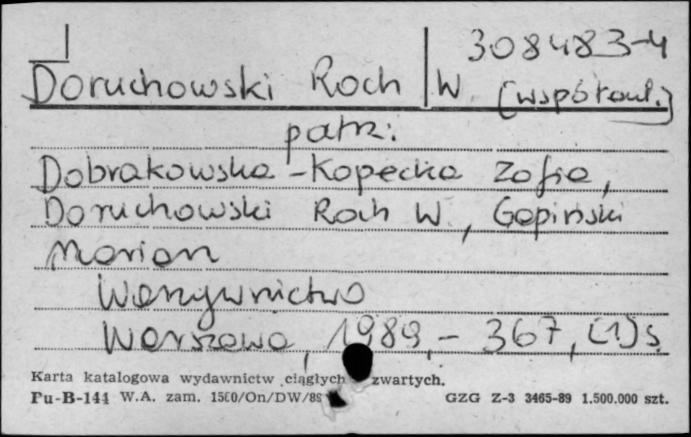 308483-4
Doruchowski Roch W. (współaut.)
patrz:
Dobrakowska-Kopecka Zofia,
Doruchowski Roch W., Gapiński
Marian
Warzywnictwo
Warszawa, 1989, - 367, (1) s.
Karta katalogowa wydawnictw ciągłych zwartych.
Pu-B-144 W.A. zam. 1500/On/DW/89 GZG Z-3 3465-89 1.500.000 szt.